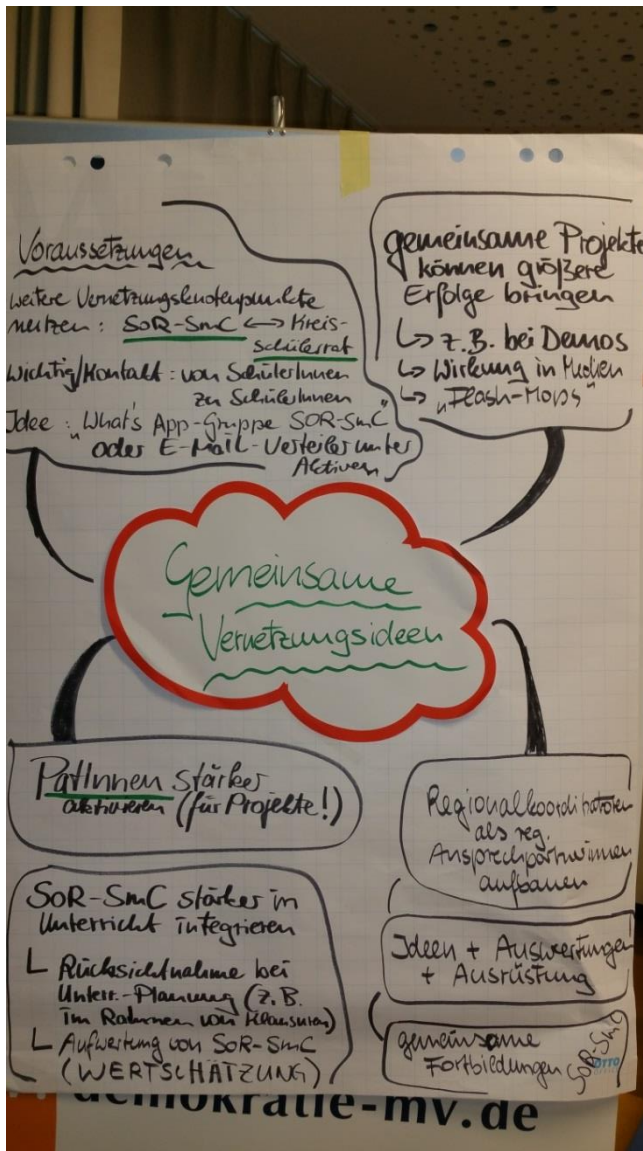 Voraussetzungen
weitere Vernetzungsknotenpunkte
nutzen: SoR-SmC <-> Kreis-
schülerrat
Wichtig/Kontakt: von SchülerInnen
zu SchülerInnen
Idee: "What's App-Gruppe SOR-SmC"
oder E-Mail-Verteiler unter
Aktiven
gemeinsame Projekte
können größere
Erfolge bringen
↳ z.B. bei Demos
↳ Wirkung in Medien
↳ "Flash-Mops"
Gemeinsame
Vernetzungsideen
PatInnen stärker
aktivieren (für Projekte!)
SoR-SmC stärker in
Unterricht integrieren
L Rücksichtnahme bei
Unterr.-Planung (z.B.
im Rahmen von Klausuren)
L Aufwertung von SoR-SmC
(WERTSCHÄTZUNG)
Regionalkoordinatoren
als reg.
Ansprechpartnerinnen
aufbauen
Ideen + Auswertungen
+ Ausrüstung
gemeinsame
Fortbildungen
SoR-SmC
OTTO
demokratie-mv.de